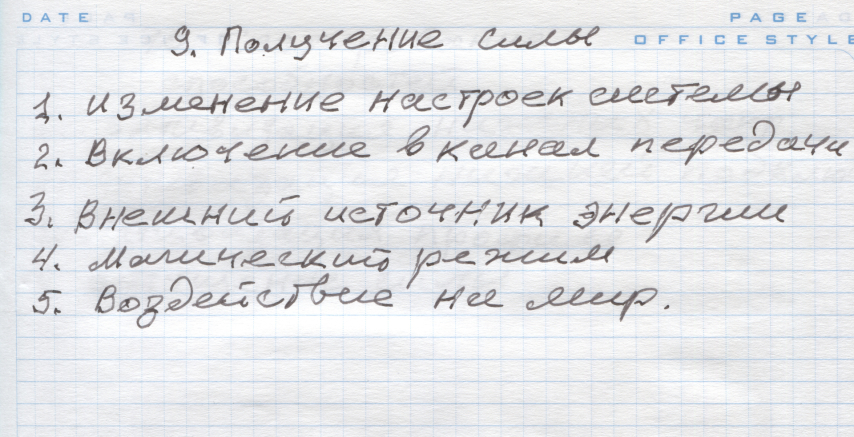 DATE
PAGE
OFFICE STYLE
9. Получение силы
1. Изменение настроек системы
2. Включение в канал передачи
3. Внешний источник энергии
4. Магический режим
5. Воздействие на мир.